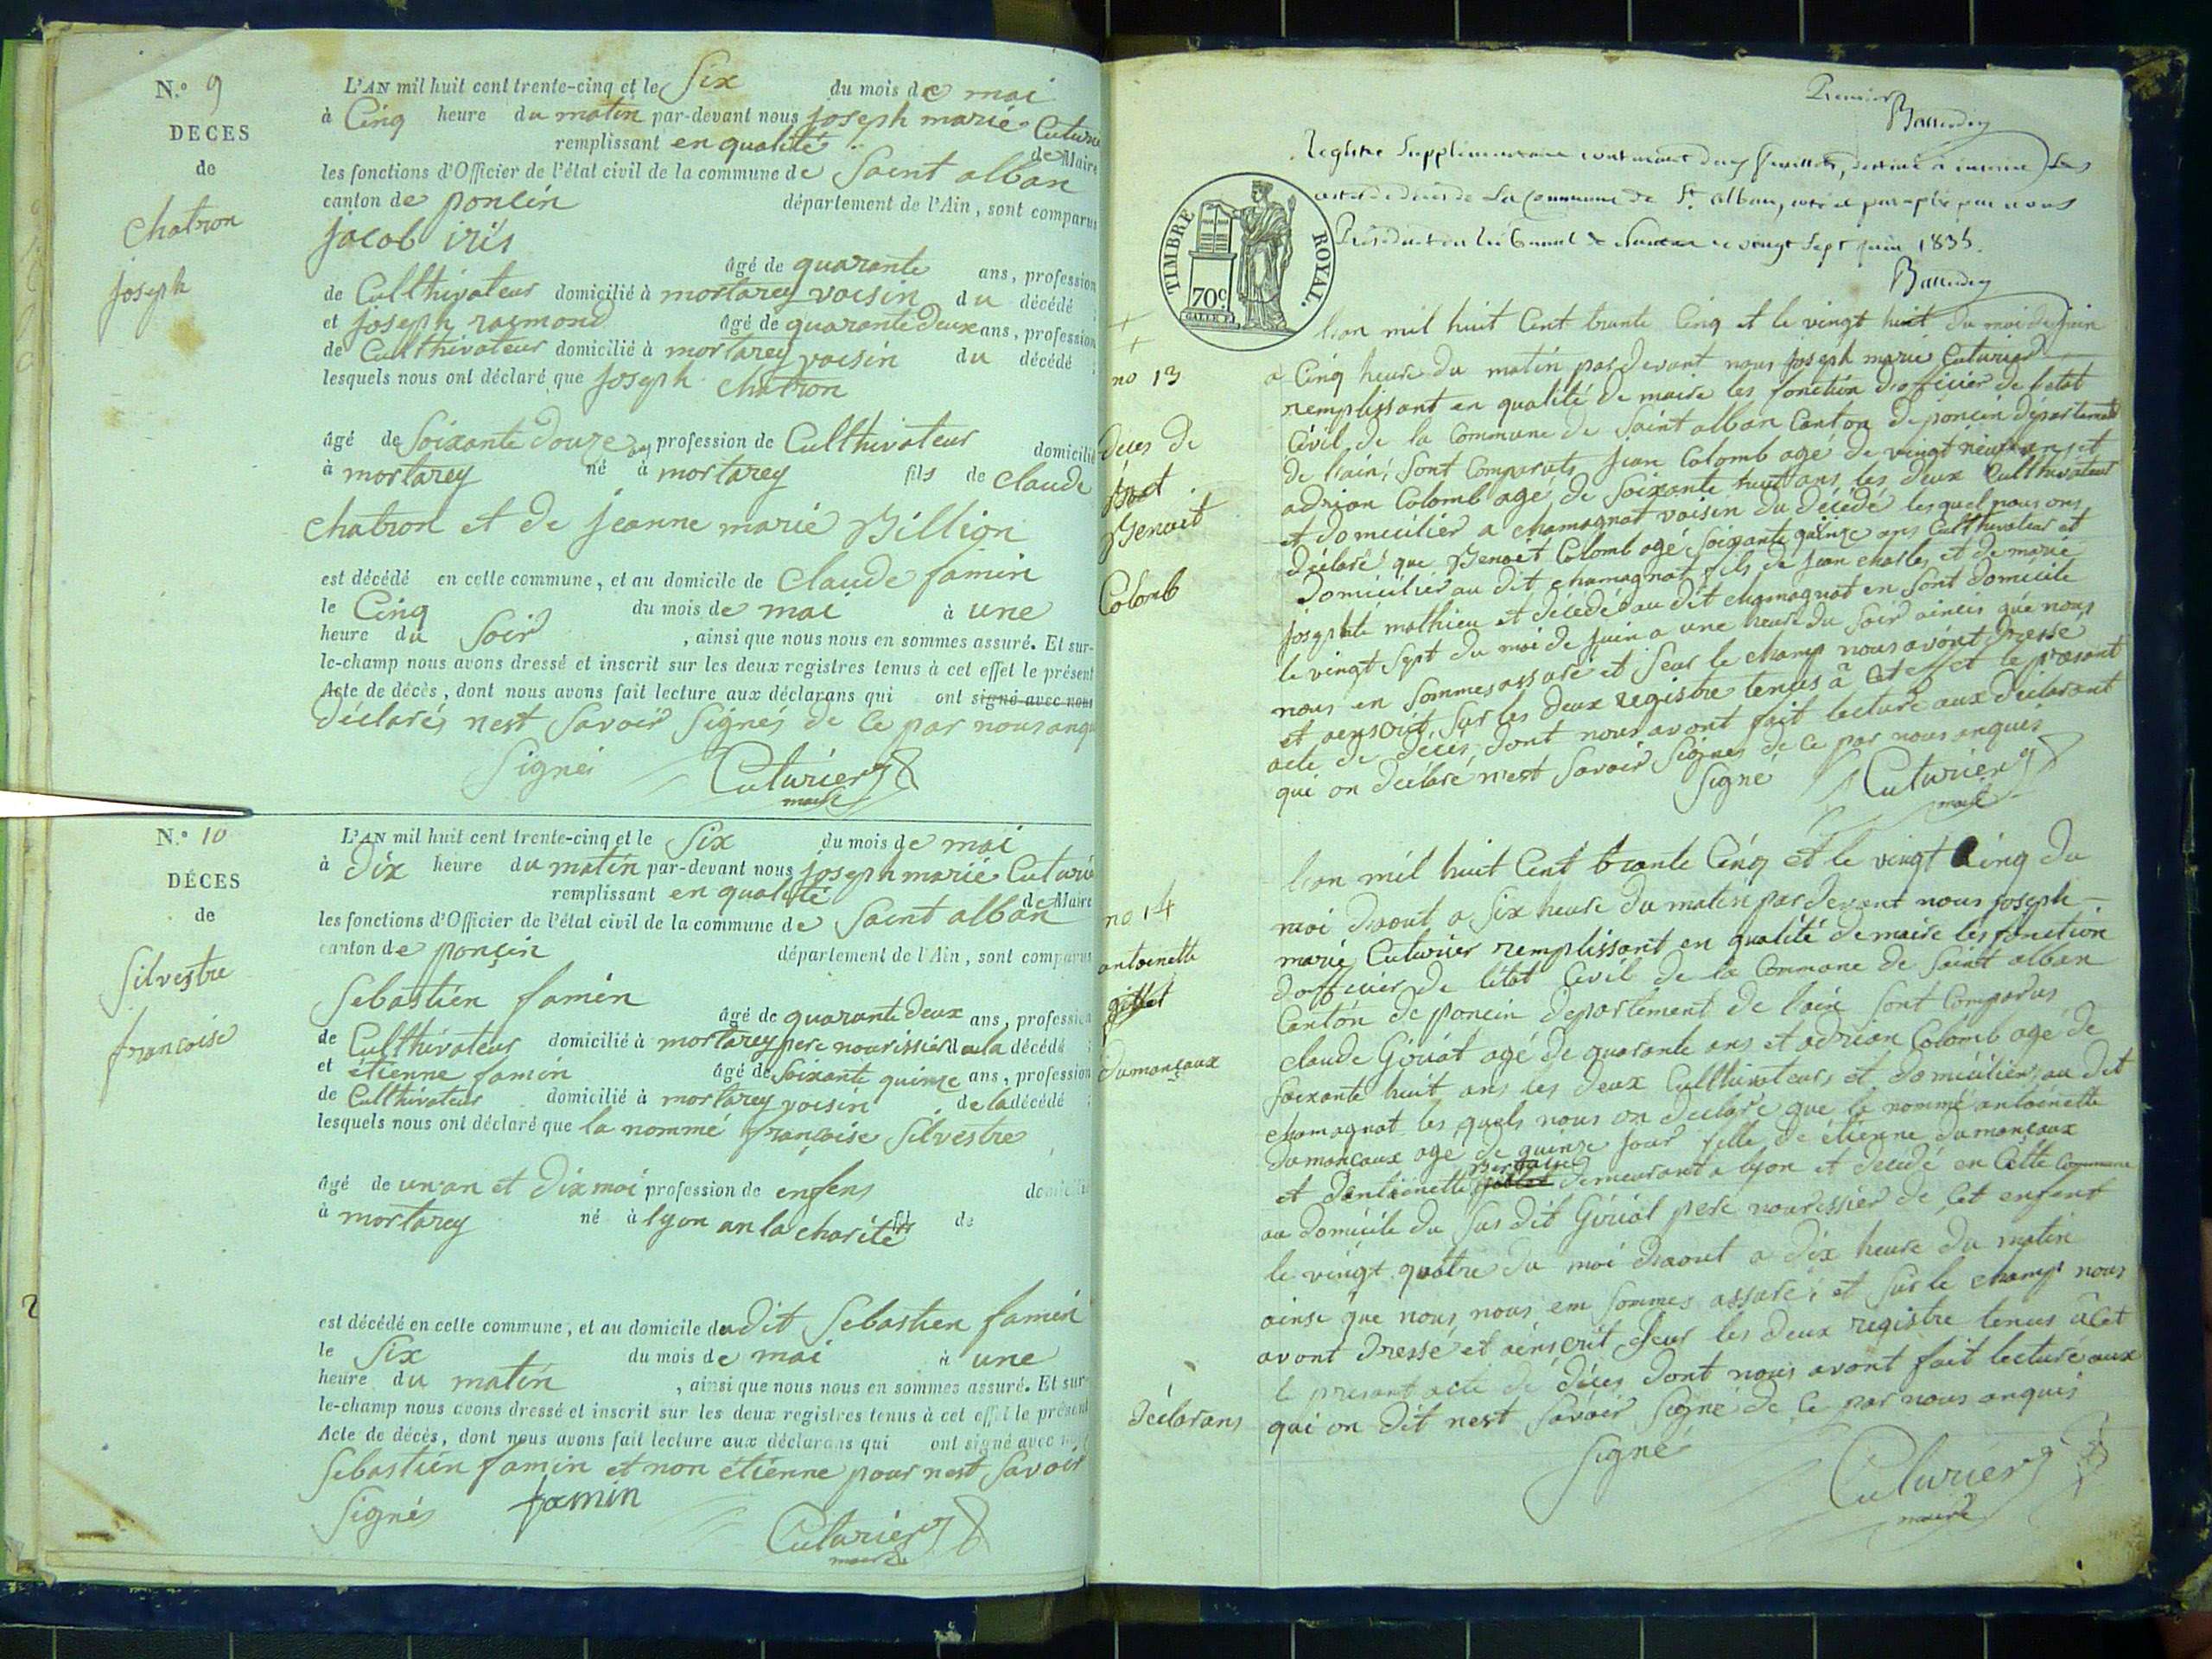 N.º 9
DECES
de
chatron
joseph
L'AN mil huit cent trente-cinq et le Six du mois de mai
à Cinq heure du matin par-devant nous joseph marie Cuturie
remplissant en qualité de Maire
les fonctions d'Officier de l'état civil de la commune de Saint alban
canton de poncin département de l'Ain, sont comparus
jacob iris
âgé de quarante ans, profession
de Culthivateur domicilié à mortarey voisin du décédé ;
et joseph raymond âgé de quarante deux ans, profession
de Culthivateur domicilié à mortarey voisin du décédé ;
lesquels nous ont déclaré que joseph chatron
âgé de Soixante douze ans profession de Culthivateur domicilié
à mortarey né à mortarey fils de claude
chatron et de jeanne marie Billion
est décédé en cette commune, et au domicile de Claude famin
le Cinq du mois de mai à une
heure du Soir , ainsi que nous nous en sommes assuré. Et sur-
le-champ nous avons dressé et inscrit sur les deux registres tenus à cet effet le présent
Acte de décès, dont nous avons fait lecture aux déclarans qui ont signé avec nous
déclarés nest Savoir Signés de Ce par nous anqu
Signé Cuturier
maire
N.º 10
DÉCES
de
Silvestre
francoise
L'AN mil huit cent trente-cinq et le Six du mois de mai
à Dix heure du matin par-devant nous joseph marie Cuturie
remplissant en qualité de Maire
les fonctions d'Officier de l'état civil de la commune de Saint alban
canton de ponçin département de l'Ain, sont comparus
Sebastien famin
âgé de quarante deux ans, profession
de Culthivateur domicilié à mortarey pere nourissier de la décédé ;
et étienne famin âgé de Soixante quinze ans, profession
de Culthivateur domicilié à mortarey voisin de la décédé ;
lesquels nous ont déclaré que la nommé françoise Silvestre
âgé de un an et Dix moi profession de enfens domicilié
à mortarey né à lyon an la charité fils de
est décédé en cette commune, et au domicile du dit Sebastien famin
le Six du mois de mai à une
heure du matin , ainsi que nous nous en sommes assuré. Et sur-
le-champ nous avons dressé et inscrit sur les deux registres tenus à cet effet le présent
Acte de décès, dont nous avons fait lecture aux déclarans qui ont signé avec nous
Sebastien famin et non étienne pour nest Savoir
Signés famin
Cuturier
maire
Premier
Registre Supplémentaire contenant deux feuillets, destiné à inscrire les
actes de décès de La Commune de St. alban, coté et paraphé par nous
Président du tribunal de Nantua ce vingt Sept juin 1835.
TIMBRE ROYAL.
70c.
no 13
déces de
Benoit
Colomb
l'an mil huit Cent trante Cinq et le vingt huit du moi de juin
a Cinq heure du matin par devant nous joseph marie Cuturier
remplissant en qualité de maire les fonction d'officier de l'etat
Civil de la Commune de Saint alban Canton de poncin département
de l'ain, Sont Comparuts jean Colomb agé de vingt neuf ans et
adrian Colomb agé de Soixante huit ans les deux Culthivateur
et domicilier a chamagnat voisin du décédé lesquel nous ons
déclaré que Benoet Colomb agé Soixante quinze ans Culthivateur et
Domicilier au dit chamagnat fils de jean charles et de marie
josephte mathieu et décédé au dit chamagnat en Sont domicile
le vingt Sept du moi de juin a une heure du Soir ainsis que nous
nous en Sommes assuré et Seur le champ nous avont dressé
et aenscrit Sur les deux registre tenus à Cet effet le presant
acte de déces, dont nous avont fait lecture aux déclarant
qui on déclaré n'est Savoir Signer de Ce par nous anquis
Signé Cuturier
maire
no 14
antoinette
dumonçaux
l'an mil huit Cent trante Cinq et le vingt Cinq du
moi daout a Six heure du matin par devant nous joseph
marie Cuturier remplissant en qualité de maire les fonction
d'officier de l'état Civil de la Commune de Saint alban
Canton de poncin departement de l'ain Sont Comparus
claude Giriat agé de quarante ans et adrian Colomb agé de
Soixante huit ans les deux Culthivateurs et domicilier au dit
chamagnat les quels nous on declaré que la nommé antoinette
dumoncaux agé de quinze jour fille de étienne dumonçaux
et dantoinette demeurant a lyon et decédé en Cette Commune
au domicile du Sus dit Giriat pere nourissier de Cet enfent
le vingt quatre du moi daout a dix heure du matin
ainse que nous nous em Sommes assuré, et Sur le champ nous
avont dressé et ainscrit Seur les deux registre tenus à Cet
le presant acte de déces dont nous avont fait lecture aux
déclarans qui on dit nest Savoir Signé de Ce par nous anquis
Signé
Cuturier
maire